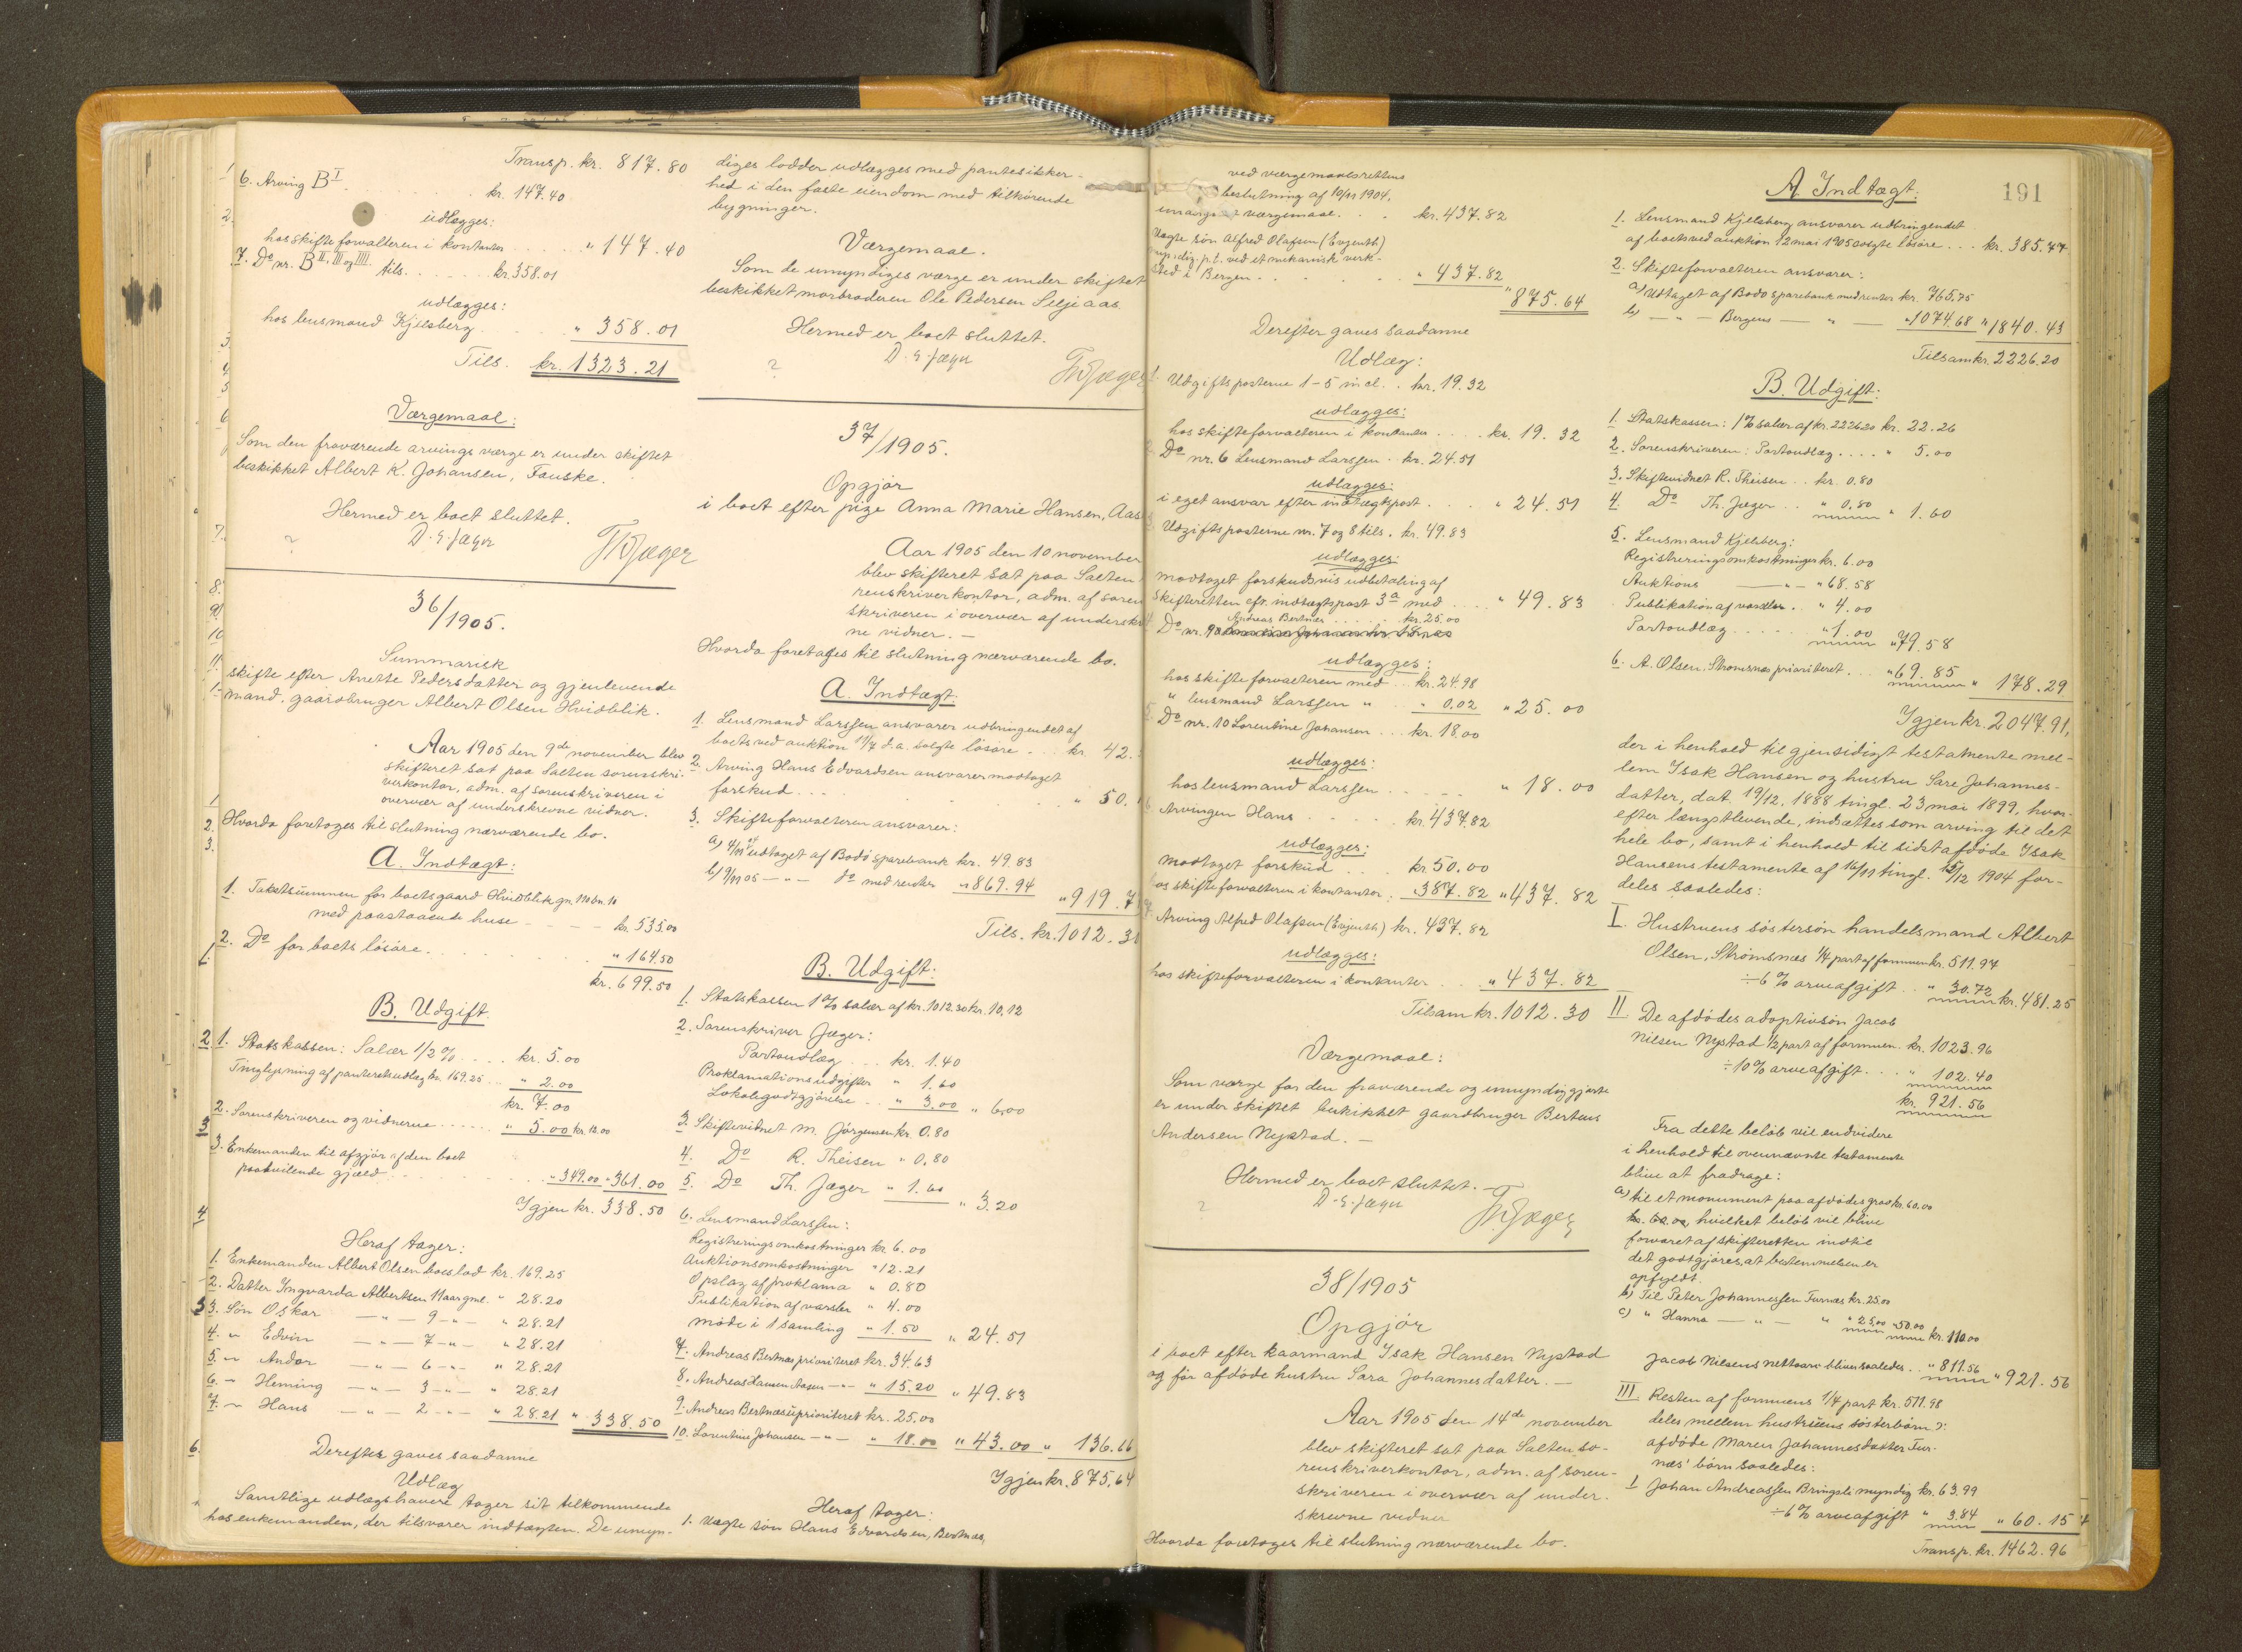 Transp. kr. 817.80
6. Arving B I. kr. 147.40
udlægges:
hos skifteforvalteren i kontanter .... " 147.40
7. Do nr. B II, III og IIII tils. .... kr. 358.01
udlægges:
hos lensmand Kjelsberg .... " 358.01
Tils. kr. 1323.21
Værgemaal:
Som den fraværende arvings værge er under skiftet
beskikket Albert K. Johansen, Fauske.
Hermed er boet sluttet.
D. E. Jæger
Th Jæger
36/1905.
Summarisk
skifte efter Anette Pedersdatter og gjenlevende
mand, gaardbruger Albert Olsen Hvidblik.
Aar 1905 den 9de november blev
skifteret sat paa Salten sorenskri-
verkontor, adm. af sorenskriveren i
overvær af underskrevne vidner.
Hvorda foretoges til slutning nærværende bo.
A. Indtægt:
1. Takstsummen for boets gaard Hvidblik gn. 110 bn. 10
med paastaaende huse - - - - kr. 535.00
2. Do for boets løsøre. .... " 164.50
kr. 699.50
B. Udgift.
1. Statskassen: Salær 1/2 % .... kr. 5.00
Tinglysning af panteretsudlæg kr. 169.25 .. " 2.00
kr. 7.00
2. Sorenskriveren og vidnerne ..... " 5.00 kr. 12.00
3. Enkemanden til afgjør af den boet
paahvilende gjæld .... " 349.00 " 361.00
Igjen kr. 338.50
Heraf tager:
1. Enkemanden Albert Olsen boeslod kr. 169.25
2. Datter Ingvarda Albertsen 11 aar gml. " 28.20
3. Søn Oskar — " — 9 - " - " 28.21
4. " Edvin — " — 7 - " - " 28.21
5. " Andor — " — 6 - " - " 28.21
6. " Heming — " — 3 - " - " 28.21
7. " Hans — " — 2 - " - " 28.21 " 338.50
Derefter gaves saadanne
Udlæg
Samtlige udlægshavere tager sit tilkommende
hos enkemanden, der tilsvarer indtægten. De umyn-
diges lodder udlægges med pantesikker-
hed i den faste eiendom med tilhørende
bygninger.
Værgemaal.
Som de umyndiges værge er under skiftet
beskikket morbroderen Ole Pedersen Seljeaas.
Hermed er boet sluttet.
D. E. Jæger
Th Jæger
37/1905.
Opgjør
i boet efter pige Anna Marie Hansen, Aas
Aar 1905 den 10 november
blev skifteret sat paa Salten
renskriverkontor, adm. af soren
skriveren i overvær af underskr
ne vidner. —
Hvorda foretages til slutning nærværende bo.
A. Indtægt:
1. Lensmand Larssen ansvarer udbringendet af
boets ved auktion 11/7 d.a. solgte løsøre ... kr. 42.
2. Arving Hans Edvardsen ansvarer modtaget
forskud ... " 50.
3. Skifteforvalteren ansvarer:
a) 4/11 05 udtaget af Bodø sparebank kr. 49.83
b) 9/11 05 — " — do med renter " 869.94 " 919.7
Tils. kr. 1012.30
B. Udgift:
1. Statskassen 1 % salær af kr. 1012.30 kr. 10.12
2. Sorenskriver Jæger:
Portoudlæg ... kr. 1.40
Proklamationsudgifter " 1.60
Lokalegodtgjørelse .. " 3.00 " 6.00
3. Skiftevidnet M. Jørgensen kr. 0.80
4. Do R. Theisen " 0.80
5. Do Th. Jæger " 1.60 " 3.20
6. Lensmand Larssen:
Registreringsomkostninger kr. 6.00
Auktionsomkostninger " 12.21
Opslag af proklama " 0.80
Publikation af varsler " 4.00
møde i 1 samling " 1.50 " 24.51
7. Andreas Bertnæs prioriteret kr. 34.63
8. Andreas Hansen Aasen — " — " 15.20 " 49.83
9. Andreas Bertnæs uprioriteret kr. 25.00
10. Lorentine Johansen — " — " 18.00 " 43.00 " 136.66
Igjen kr. 875.64
Heraf tager:
1. Uægte søn Hans Edvardsen, Bertnæs,
ved værgemaalsrettens
beslutning af 10/11 1904,
værgemaal. . . kr. 437.82
Uægte søn Alfred Olafsen (Evjenth)
myndig, p.t. ved et mekanisk verk-
sted i Bergen . . . . " 437.82
" 875.64
Derefter gaves saadanne
Udlæg:
1. Udgiftsposterne 1-5 incl. . kr. 19.32
udlægges:
hos skifteforvalteren i kontanter .... kr. 19.32
Do nr. 6 Lensmand Larssen . kr. 24.51
udlægges:
i eget ansvar efter indtægtspost . . " 24.51
Udgiftsposterne nr. 7 og 8 tils. kr. 49.83
udlægges:
modtaget forskudsvis udbetaling af
skifteretten efr. indtægtspost 3a med .... " 49.83
Do nr. 9 Andreas Bertnæs ...... kr. 25.00
udlægges:
hos skifteforvalteren med .. kr. 24.98
" lensmand Larssen " . " 0.02 " 25.00
Do nr. 10 Lorentine Johansen ... kr. 18.00
udlægges:
hos lensmand Larssen . . - - - " 18.00
Arvingen Hans . . . . . kr. 437.82
udlægges:
modtaget forskud ... kr 50.00
hos skifteforvalteren i kontanter . " 387.82 " 437.82
Arving Alfred Olafsen (Evjenth) kr. 437.82
udlægges:
hos skifteforvalteren i kontanter . . . " 437.82
Tilsam kr. 1012.30
Værgemaal:
Som værge for den fraværende og umyndiggjorte
er under skiftet beskikket gaardbruger Bertheus
Andersen Nystad. —
Hermed er boet sluttet. —
D. E. Jæger
Th. Jæger
38/1905
Opgjør
i boet efter kaarmand Isak Hansen Nystad
og før afdøde hustru Sara Johannesdatter. —
Aar 1905 den 14de november
blev skifteret sat paa Salten so-
renskriverkontor, adm. af soren-
skriveren i overvær af under-
skrevne vidner
Hvorda foretoges til slutning nærværende bo.
191
A. Indtægt:
1. Lensmand Kjelsberg ansvarer udbringendet
af boets ved auktion 12 mai 1905 solgte løsøre ... kr. 385.77
2. Skifteforvalteren ansvarer:
a) Udtaget af Bodø sparebank med renter kr. 765.75
b) — " — Bergens — " — " 1074.68 " 1840.43
Tilsam kr. 2226.20
B. Udgift:
1. Statskassen: 1 % salær af kr. 2226.20 kr. 22.26
2. Sorenskriveren: Portoudlæg .... " 5.00
3. Skiftevidnet R. Theisen .. kr. 0.80
4. Do Th. Jæger .. " 0.80 " 1.60
5. Lensmand Kjelsberg:
Registreringsomkostninger kr. 6.00
Auktions — " — " 68.58
Publikation af varsler . " 4.00
Portoudlæg ...... " 1.00 " 79.58
6. A. Olsen, Strømsnæs prioriteret ... " 69.85 " 178.29
Igjen kr. 2047.91,
der i henhold til gjensidigt testamente mel-
lem Isak Hansen og hustru Sare Johannes-
datter, dat. 19/12, 1888 tingl. 23 mai 1899, hvor-
efter længstlevende, indsættes som arving til det
hele bo, samt i henhold til sidstafdøde Isak
Hansens testamente af 16/11 tingl. 15/12 1904 for-
deles saaledes:
I. Hustruens søstersøn handelsmand Albert
Olsen, Strømsnæs 1/4 part af formuen kr. 511.97
÷ 6 % arveafgift .. " 30.72 kr. 481.25
II De afdødes adoptivsøn Jacob
Nilsen Nystad 1/2 part af formuen. kr. 1023.96
÷ 10 % arveafgift ... " 102.40
kr. 921.56
Fra dette beløb vil endvidere
i henhold til ovennævnte testamente
blive at fradrage:
a) til et monument paa afdødes grav kr. 60.00
hvilket beløb vil blive
forvaret af skifteretten indtil
det godtgjøres, at bestemmelsen er
opfyldt.
b) Til Peter Johannessen Furnæs kr. 25.00
c) " Hanna — " — " " 25.00 " 50.00 kr. 110.00
Jacob Nilsens nettoarv bliver saaledes .. " 811.56 " 921.56
III Resten af formuens 1/4 part kr. 511.98
deles mellem hustruens søsterbørn ɔ:
afdøde Maren Johannesdatter Fur-
næs' børn saaledes:
1 Johan Andreassen Bringsli myndig kr. 63.99
÷ 6 % arveafgift " 3.84 " 60.15
Transp. kr. 1462.96